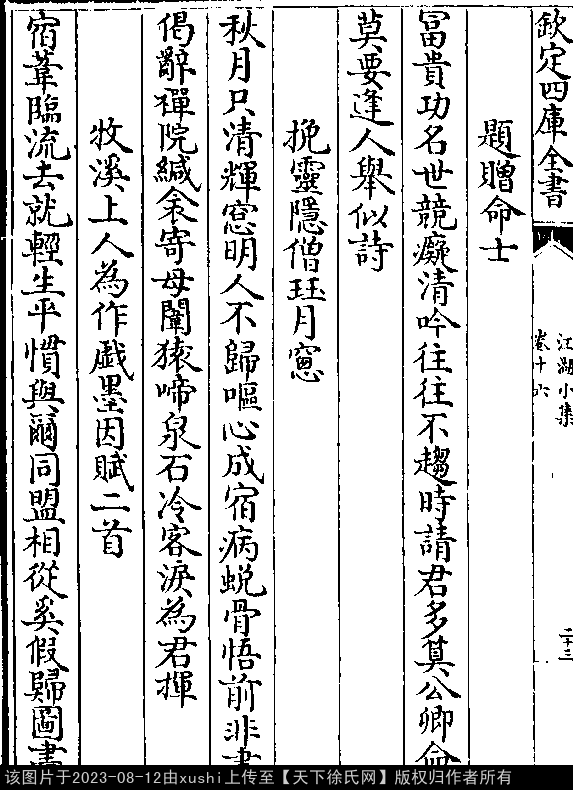 欽定四庫全書
江湖小集
卷十六
二十三
題贈命士
冨貴功名世競癡清吟往往不趨時請君多莫公卿命
莫要逢人舉似詩
挽靈隱僧珏月窻
秋月只清輝窓明人不歸嘔心成宿病蛻骨悟前非書
偈辭禪院緘衾寄母闈猿啼泉石冷客淚為君揮
牧溪上人為作戯墨因賦二首
宿葦臨流去就輕生平慣與爾同盟相從奚假歸圖畫
该图片于2023-08-12由xushi上传至【天下徐氏网】版权归作者所有